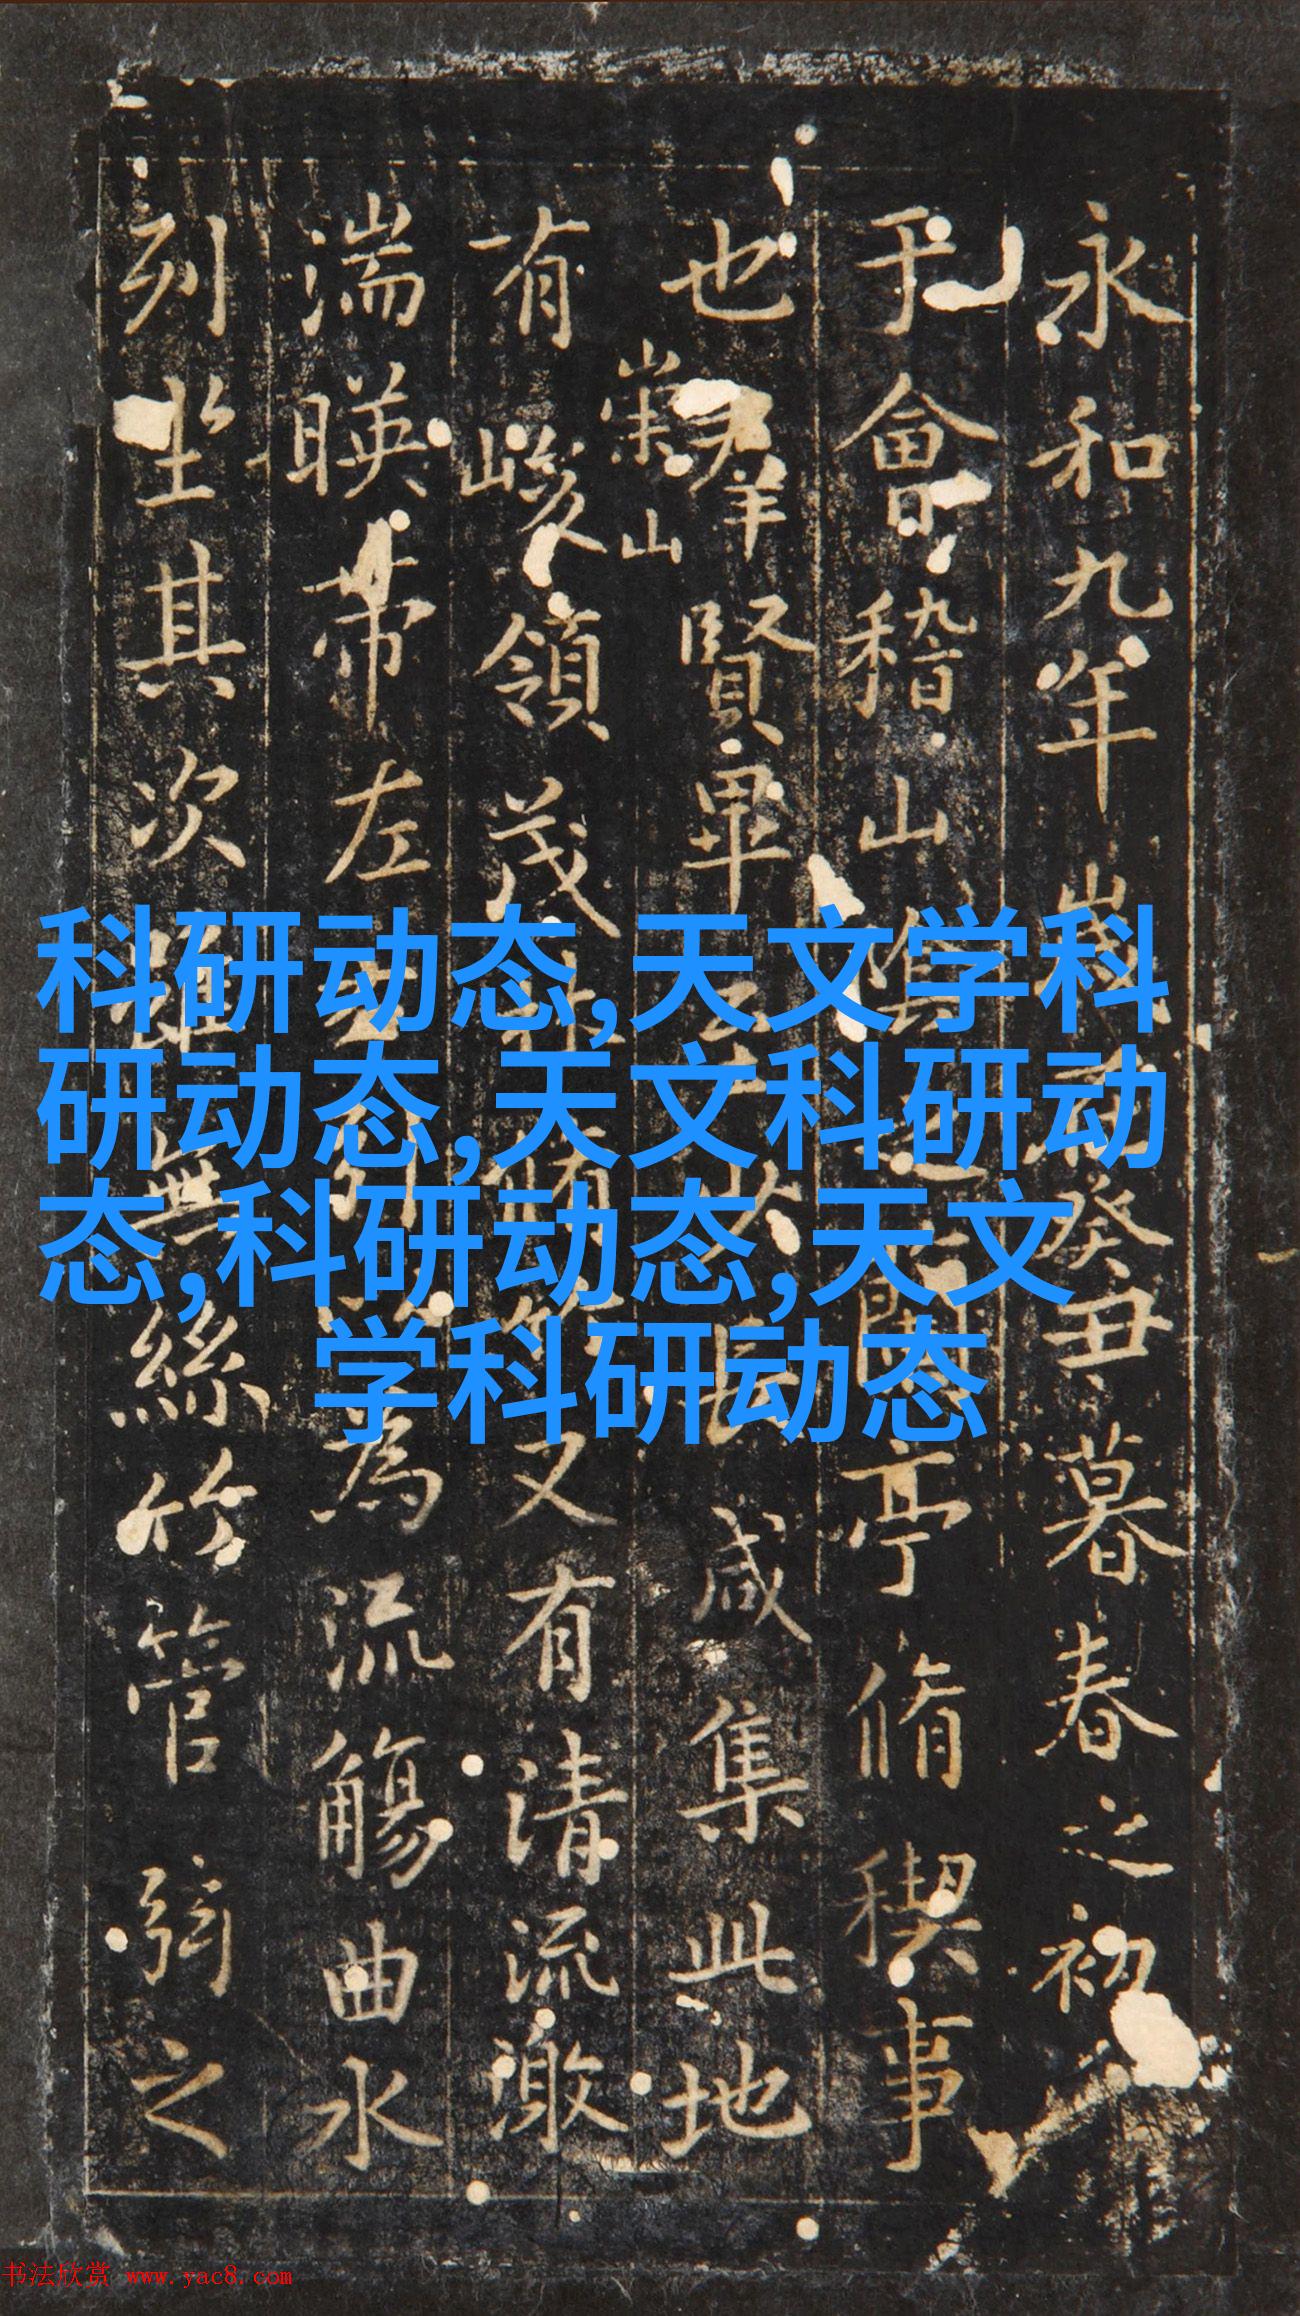 永和九年歲在癸丑暮春之初
于會稽山陰之蘭亭脩稧事
也羣賢畢至少長咸集此地
崇山
有峻領茂林脩竹又有清流激
湍暎帶左右引以為流觴曲水
列坐其次雖無絲竹管弦之
科研动态,天文学科
研动态,天文科研动
态,科研动态,天文
学科研动态
书法欣赏 www.yac8.com